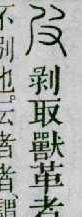 皮剝取獸革者
不別也。云者者謂